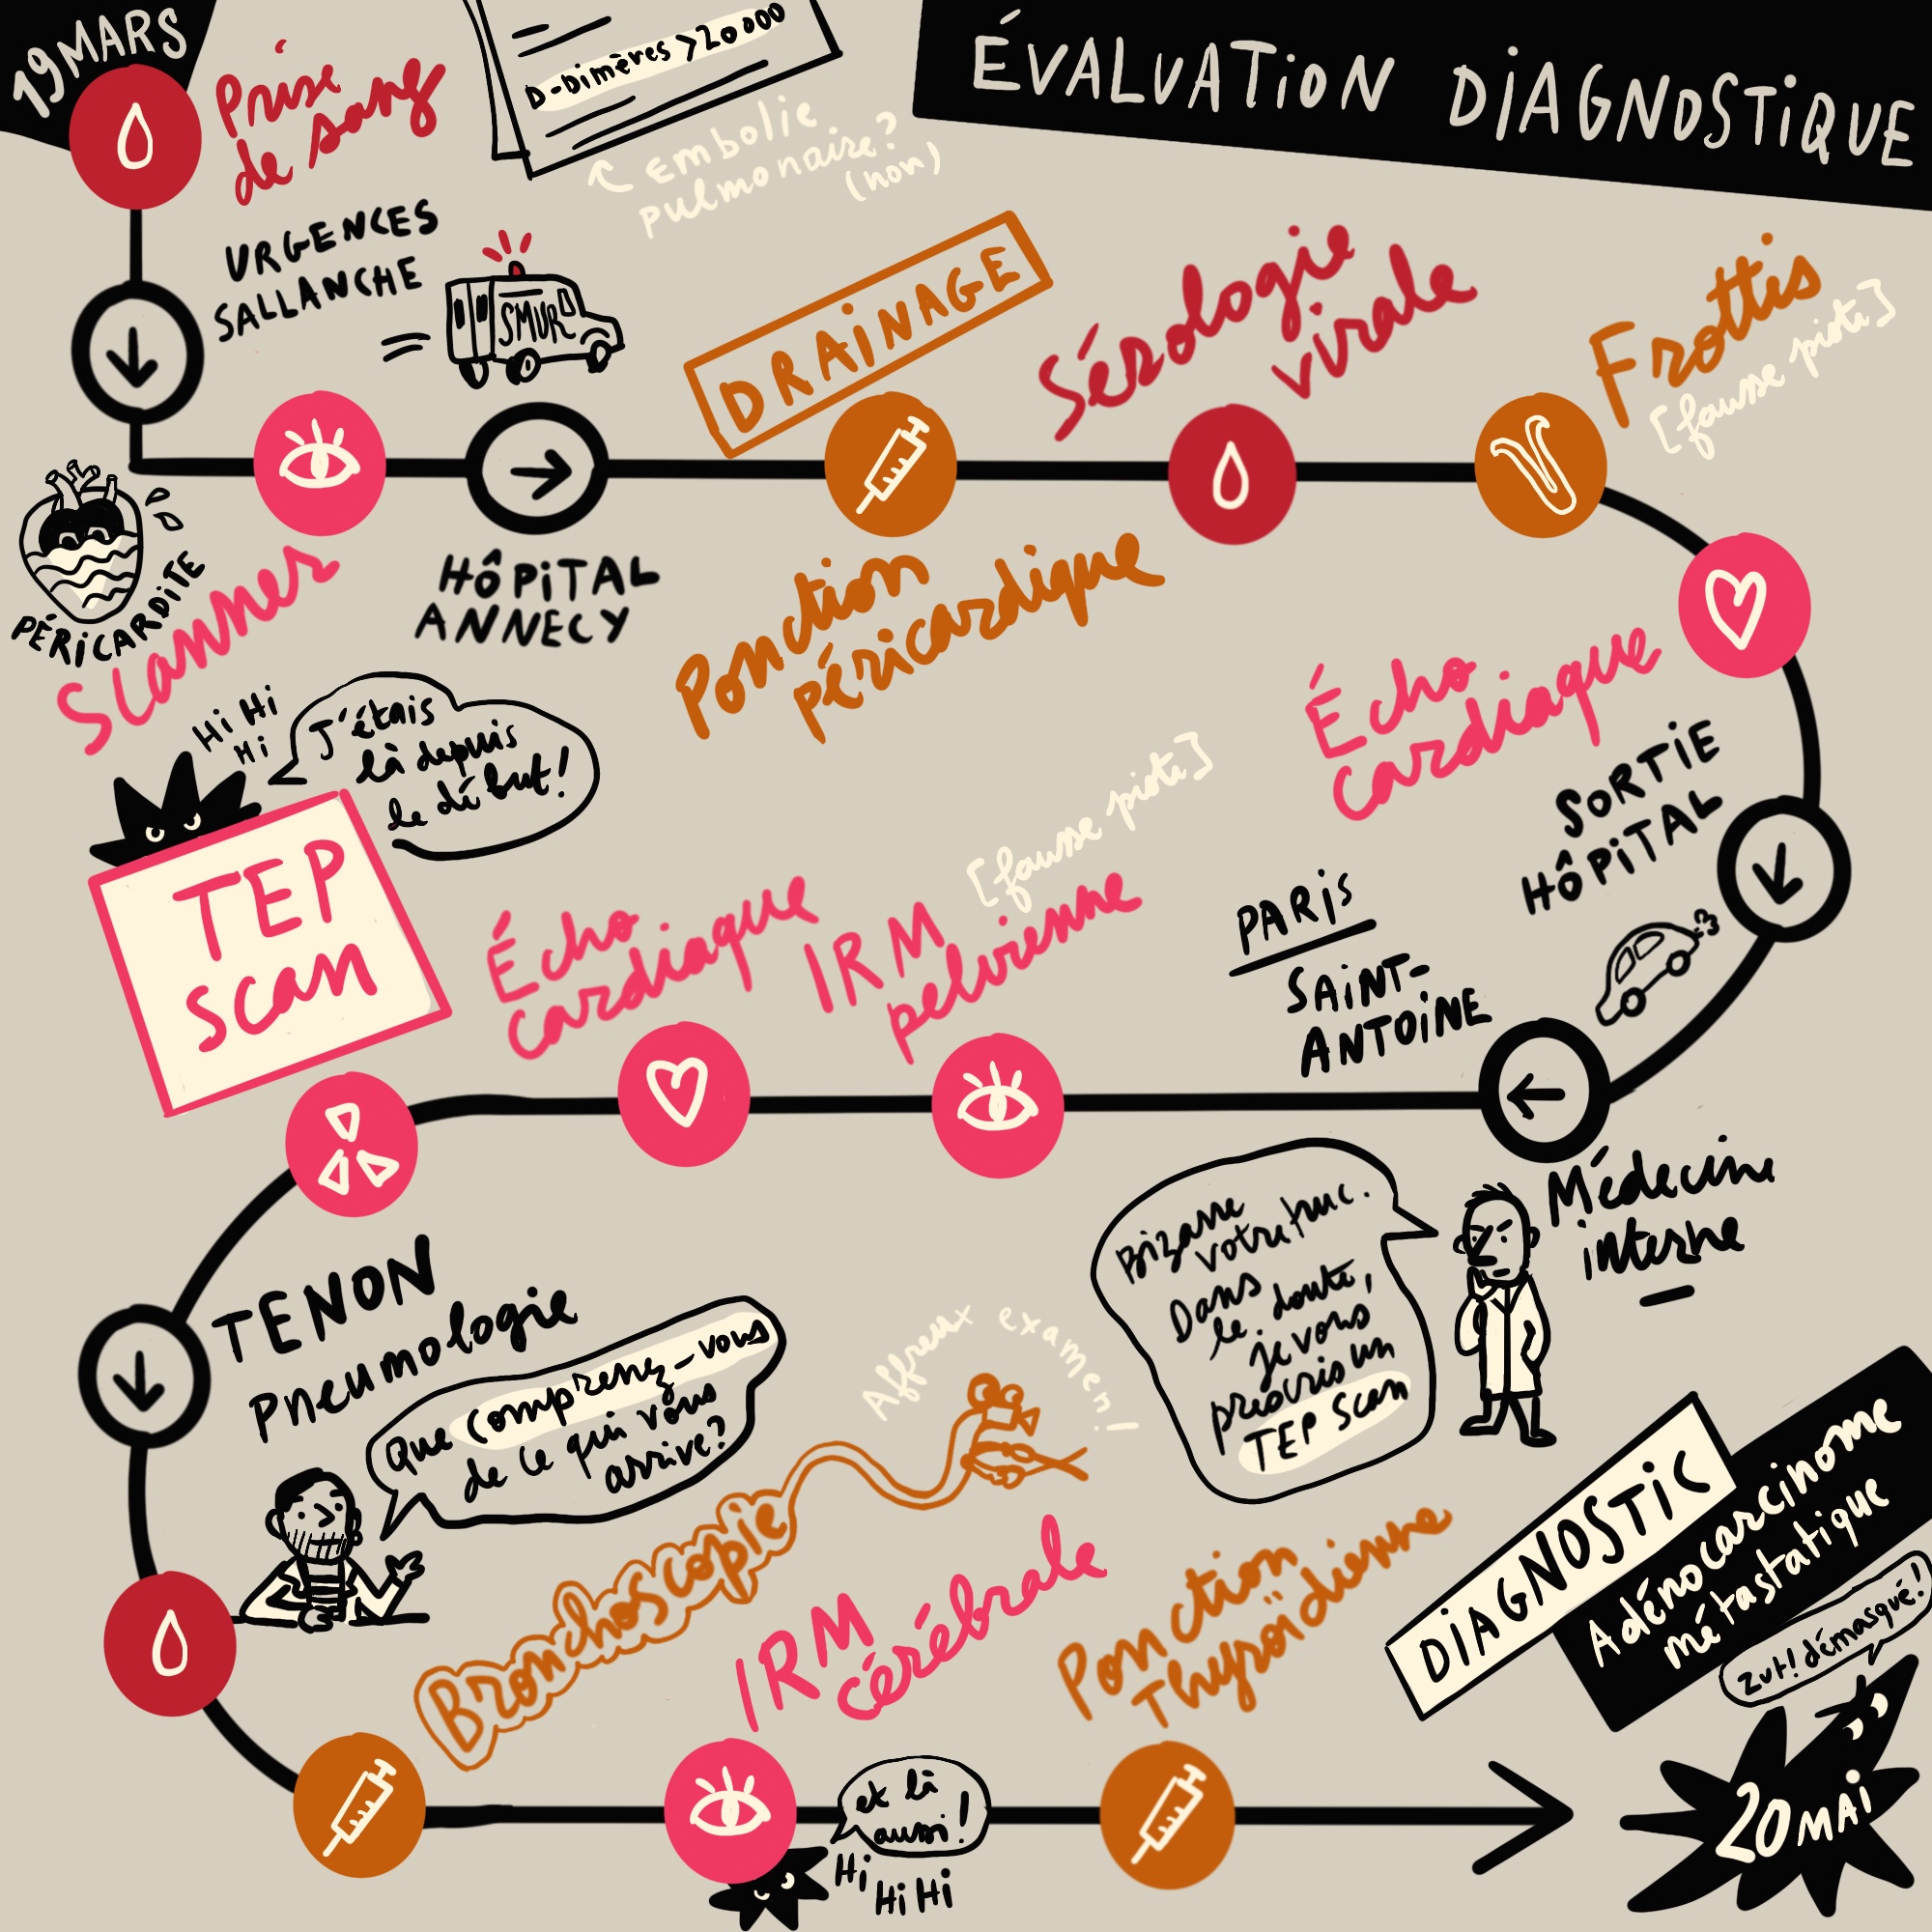 19 MARS
Prise
de sang
D-Dimères >20000
Embolie
pulmonaire?
(non)
ÉVALUATION DIAGNOSTIQUE
URGENCES
SALLANCHE
SMUR
DRAINAGE
Sérologie
virale
Frottis
[fausse piste]
PÉRICARDITE
Scanner
HÔPITAL
ANNECY
Ponction
péricardique
Écho
cardiaque
SORTIE
HÔPITAL
Hi Hi
Hi
J'étais
là depuis
le début!
TEP
Scan
Écho
cardiaque
IRM
pelvienne
[fausse piste]
PARIS
SAINT-
ANTOINE
Médecine
interne
Bizarre
votre truc.
Dans
le doute,
je vous
prescris un
TEP Scan
TENON
Pneumologie
Que comprenez-vous
de ce qui vous
arrive?
Affreux examen!
Bronchoscopie
IRM
cérébrale
Ponction
Thyroïdienne
DIAGNOSTIC
Adénocarcinome
métastatique
Zut! démasqué!
et là
aussi!
Hi
Hi Hi
20 MAI